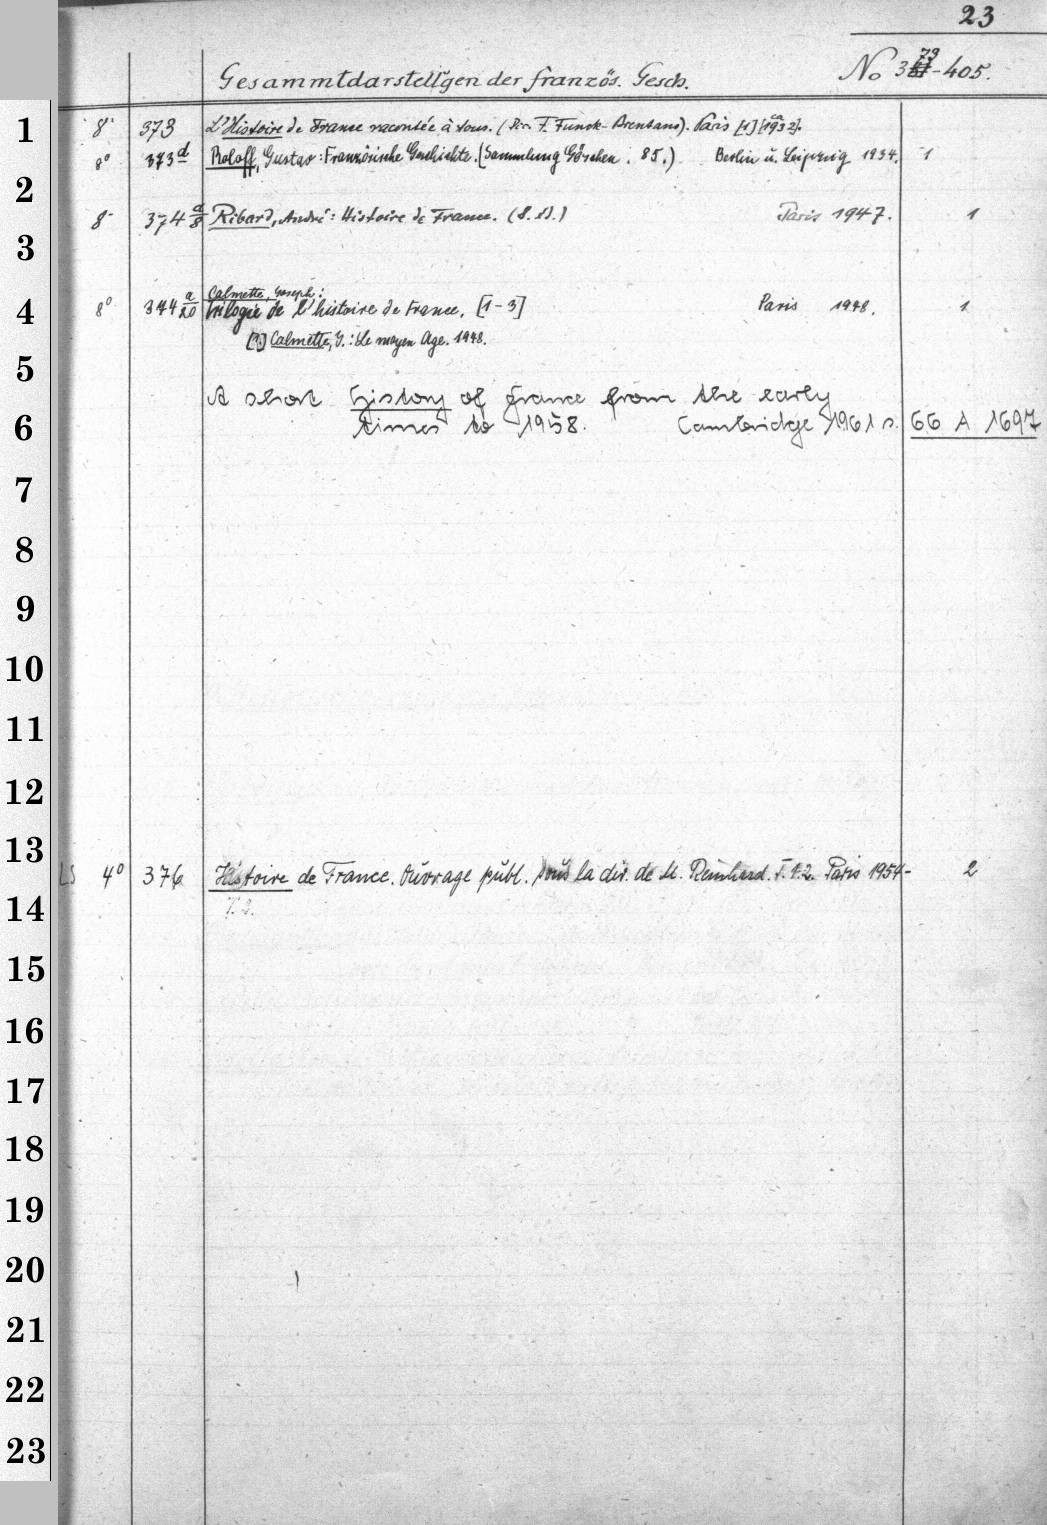 23
Gesammtdarstellgen der französ. Gesch. No 373-405.
1 8° 373 L'Histoire de France racontée à tous. (Dir. F. Funck-Brentano). Paris [1] (1932).
8° 373 d Roloff, Gustav: Französische Geschichte. (Sammlung Göschen. 85.) Berlin u. Leipzig 1934. 1
2
8° 374 a/8 Ribard, André: Histoire de France. (8. éd.) Paris 1947. 1
3
Calmette, Joseph:
4 8° 374 a/20 Trilogie de l'histoire de France. [1-3] Paris 1948. 1
[1.] Calmette, J.: Le moyen Age. 1948.
5
A short history of france from the early
6 times to 1958. Cambridge 1961 s. 66 A 1697
7
8
9
10
11
12
13
LS 4° 376 Histoire de France. Ouvrage publ. sous la dir. de M. Reinhard. T. 1.2. Paris 1954- 2
14 T. 2.
15
16
17
18
19
20
21
22
23